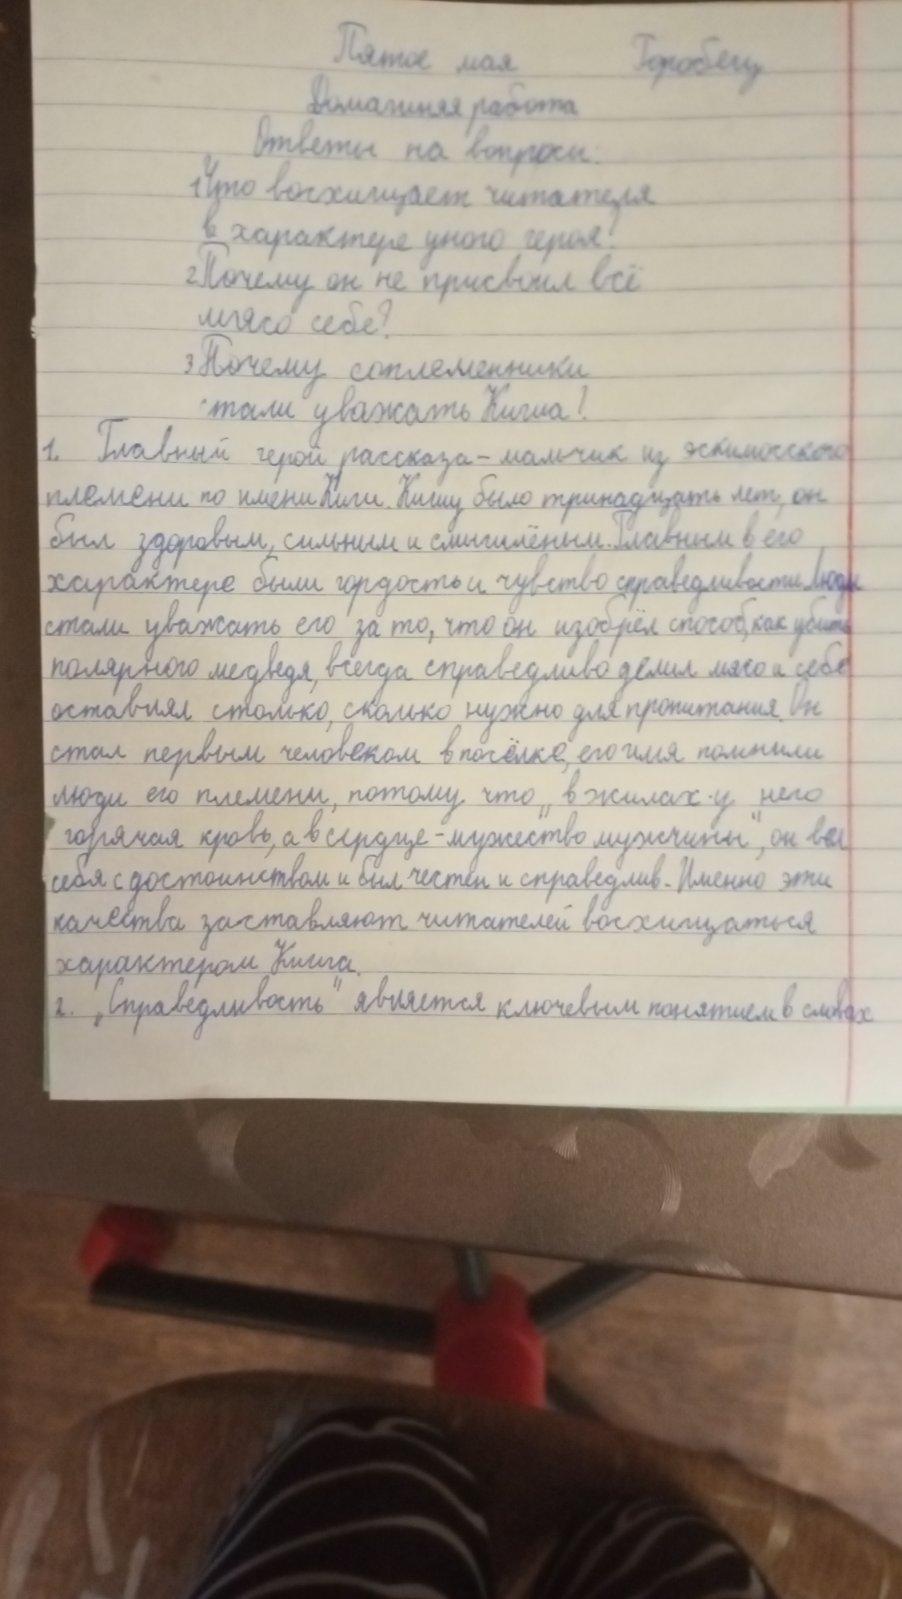 Пятое мая Горобец
Домашняя работа
Ответы на вопросы:
1 Что восхищает читателя
в характере уного героя?
2 Почему он не присвоил всё
мясо себе?
3 Почему соплеменники
стали уважать Киша?
1. Главный герой рассказа - мальчик из эскимосского
племени по имени Киш. Кишу было тринадцать лет, он
был здоровым, сильным и смышлёным. Главным в его
характере были гордость и чувство справедливости. Люди
стали уважать его за то, что он изобрёл способ, как убить
полярного медведя, всегда справедливо делил мясо и себе
оставлял столько, сколько нужно для пропитания. Он
стал первым человеком в посёлке, его имя помнили
люди его племени, потому что „в жилах у него
горячая кровь, а в сердце - мужество мужчины", он вёл
себя с достоинством и был честен и справедлив. Именно эти
качества заставляют читателей восхищаться
характером Киша.
2. „Справедливость" является ключевым понятием в словах